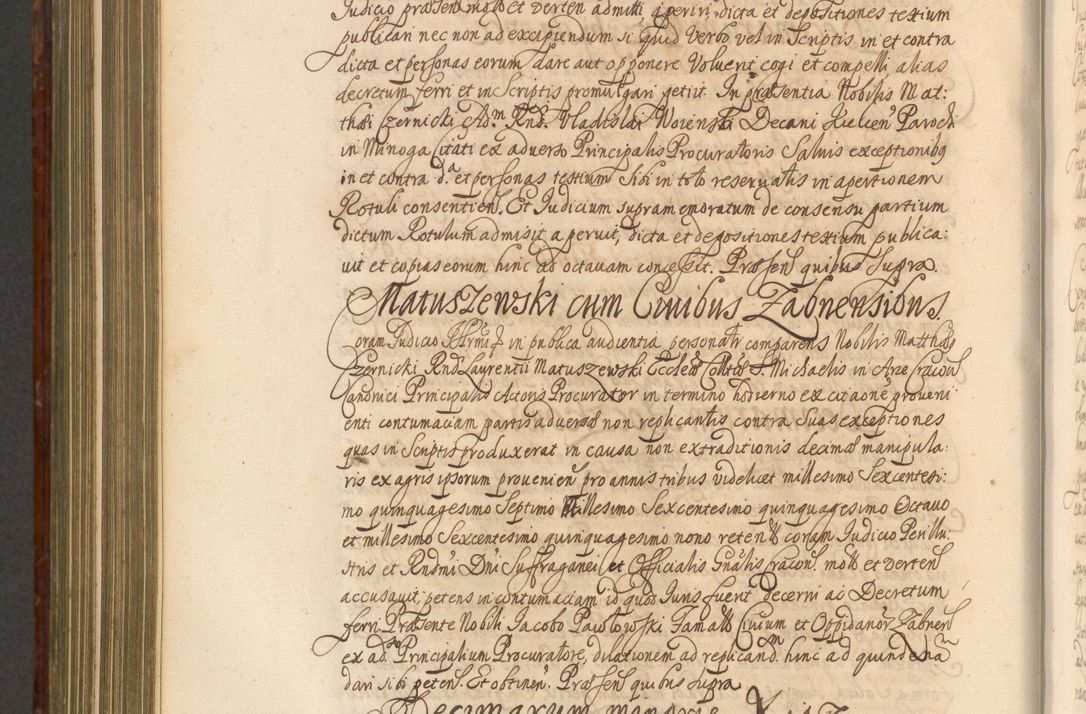 Judicio præsen mott et verten admitti, aperiri, dicta et depositiones testium
publicari nec non ad excipiendum si quid verbo vel in Scriptis in et contra
dicta et personas eorum dare aut opponere voluerit cogi et compelli alias
decretum ferri et in Scriptis promulgari petiit. In præsentia Nobilis Mat:
thæi Czernicki Adm. Rndi Vladislai Woienski Decani Kielcen Parochi
in Minoga Citati ex adverso Principalis Procuratoris Salvis exceptionibq
in et contra da. et personas testium Sibi in toto reservatis in apertionem
Rotuli consentien. Et Judicium supramemoratum de consensu partium
dictum Rotulum admisit aperuit, dicta et depositiones testium publica:
vit et copias eorum hinc ad octavam concessit. Præsen quibus supra.
Matuszewski cum Civibus Zabnensibus.
Coram Judicio in publica audientia personalr comparens Nobilis Matthæus
Czernicki Rndi Laurentii Matuszewski Eccleæ Colltæ S. Michaelis in Arce Cracovi
Canonici Principalis Actoris Procurator in termino hodierno ex citaone proveni
enti contumaciam partis adversæ non replicantis contra suas exceptiones
quas in Scriptis produxerat in causa non extraditionis decimæ manipula:
ris ex agris ipsorum provenien pro annis tribus videlicet millesimo Sexcentesi:
mo quinquagesimo Septimo Millesimo Sexcentesimo quinquagesimo Octavo
et millesimo Sexcentesimo quinquagesimo nono retent coram Judicio Perillu:
stris et Rndmi Dni Suffraganei et Officialis Gnalis Cracovi. mott et verten
accusavit, petens in contumaciam id quod Juris fuerit decerni ac Decretum
ferri. Præsente Nobili Jacobo Pawlojoski Famatt Civium et Oppidanor Zabnen
ex adso Principalium Procuratore, dilationem ad replicandm. hinc ad quindena
dari sibi peten. Et obtinen. Præsen quibus supra
Decimarum